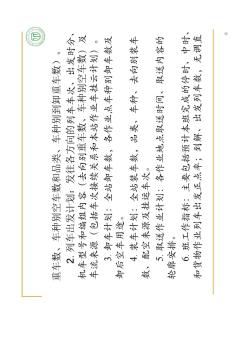 重车数、车种别空车数和品类、车种别到卸重车数）。
2. 列车出发计划：发往各方向的列车车次、出发时分、
机车型号和编组内容（去向别重车数、车种别空车数）及
车流来源（包括车次接续关系和本站作业车挂运计划）。
3. 卸车计划：全站卸车数，各作业点车种别卸车数及
卸后空车用途。
4. 装车计划：全站装车数，品类、车种、去向别装车
数、配空来源及挂运车次。
5. 取送作业计划：各作业地点取送时间、取送内容的
轮廓安排。
6. 班工作指标：主要包括预计本班完成的停时、中时，
和货物作业列车出发正点率；到解、出发列车数、无调直